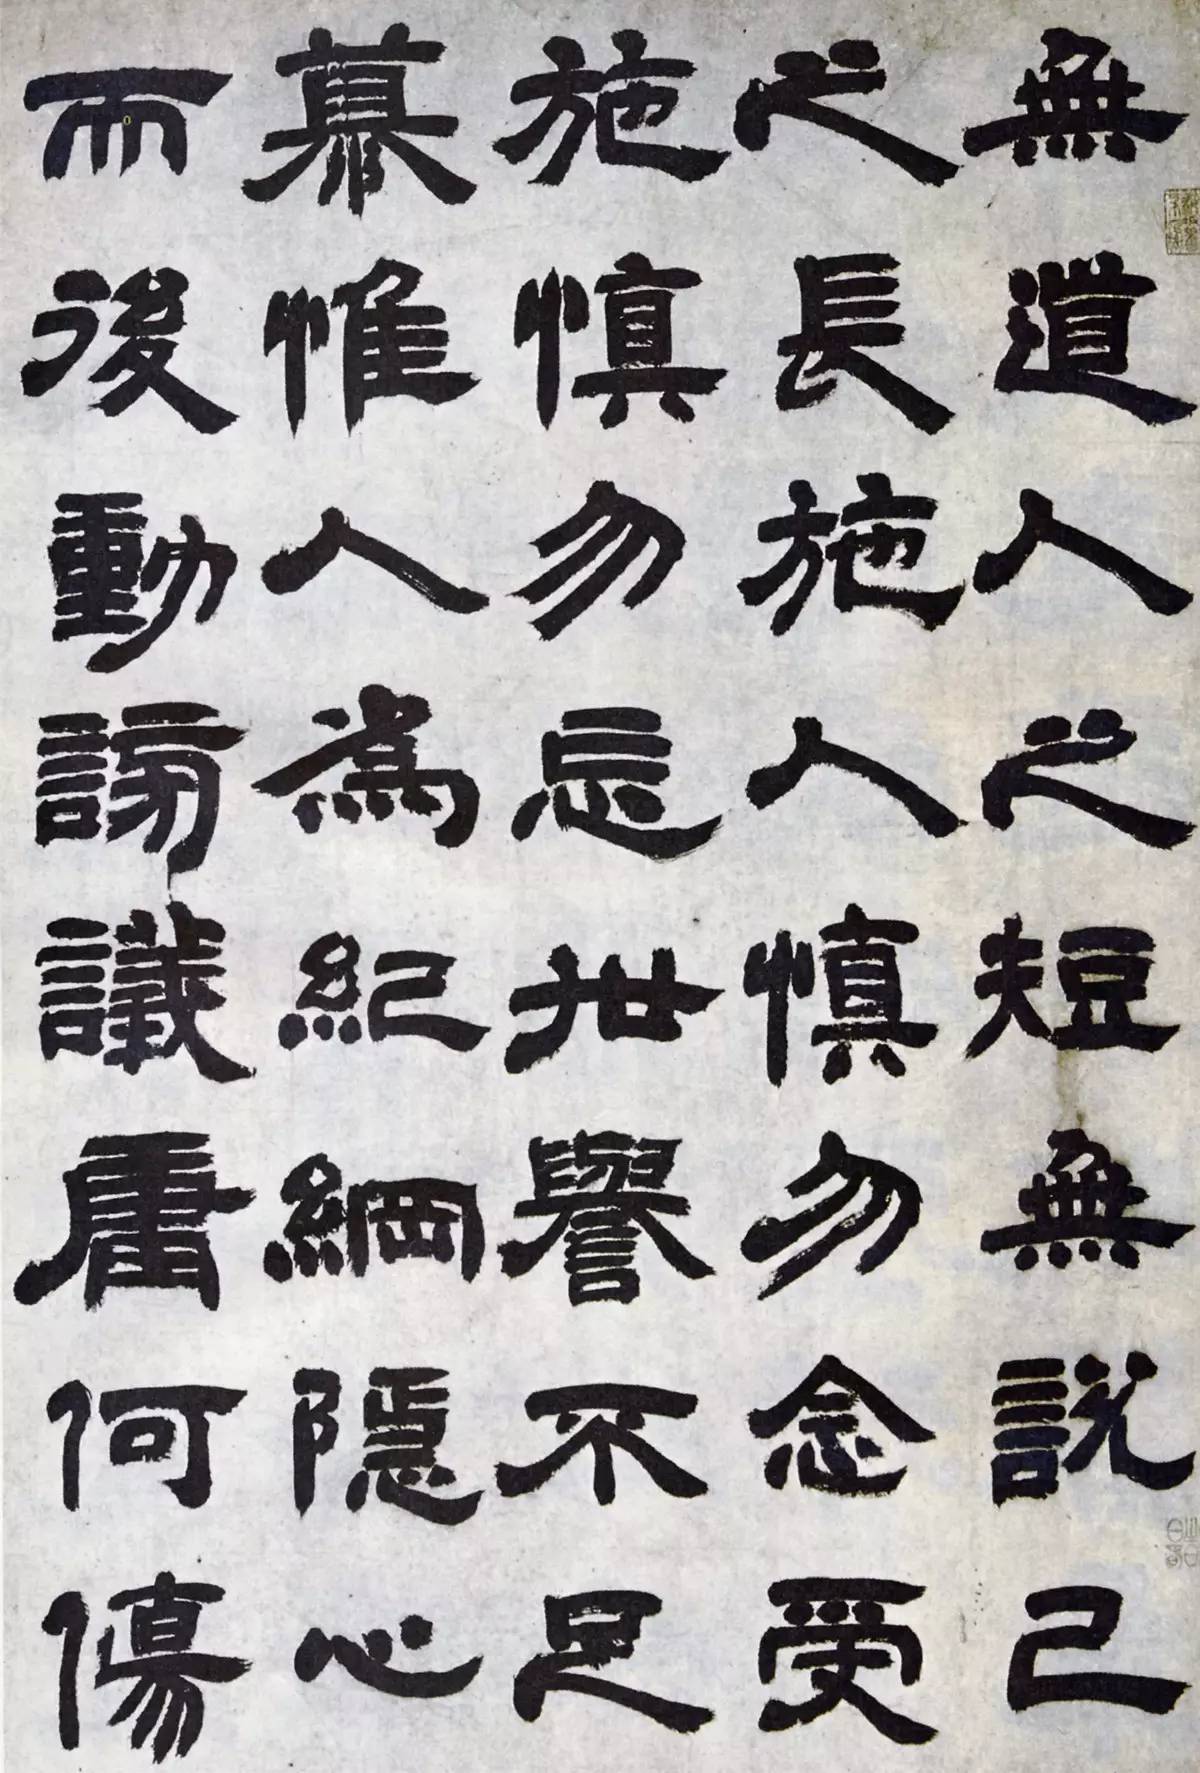 無道人之短無說己
之長施人慎勿念受
施慎勿忘世譽不足
慕惟人為紀綱隱心
而後動謗議庸何傷